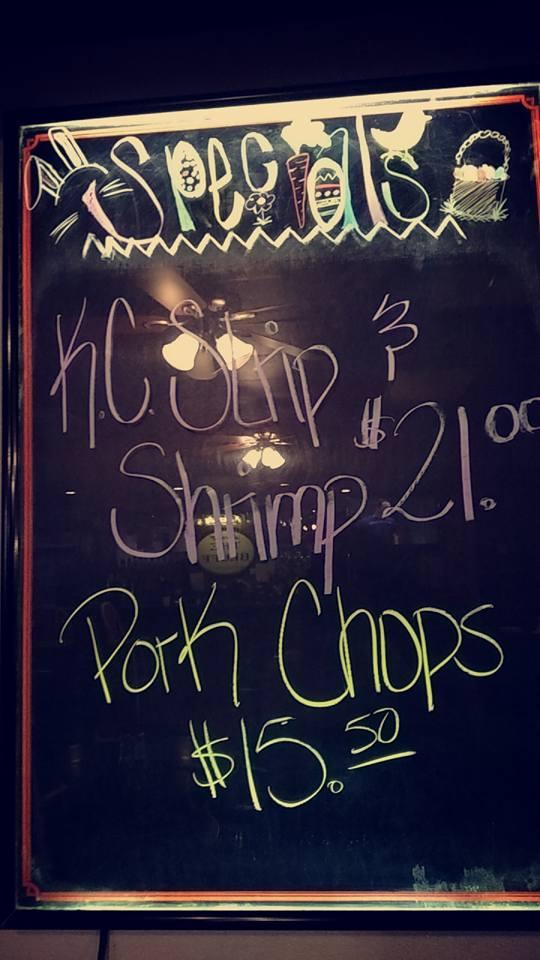 Specials
K.C. Strip &
Shrimp $21.00
Pork Chops
$15.50